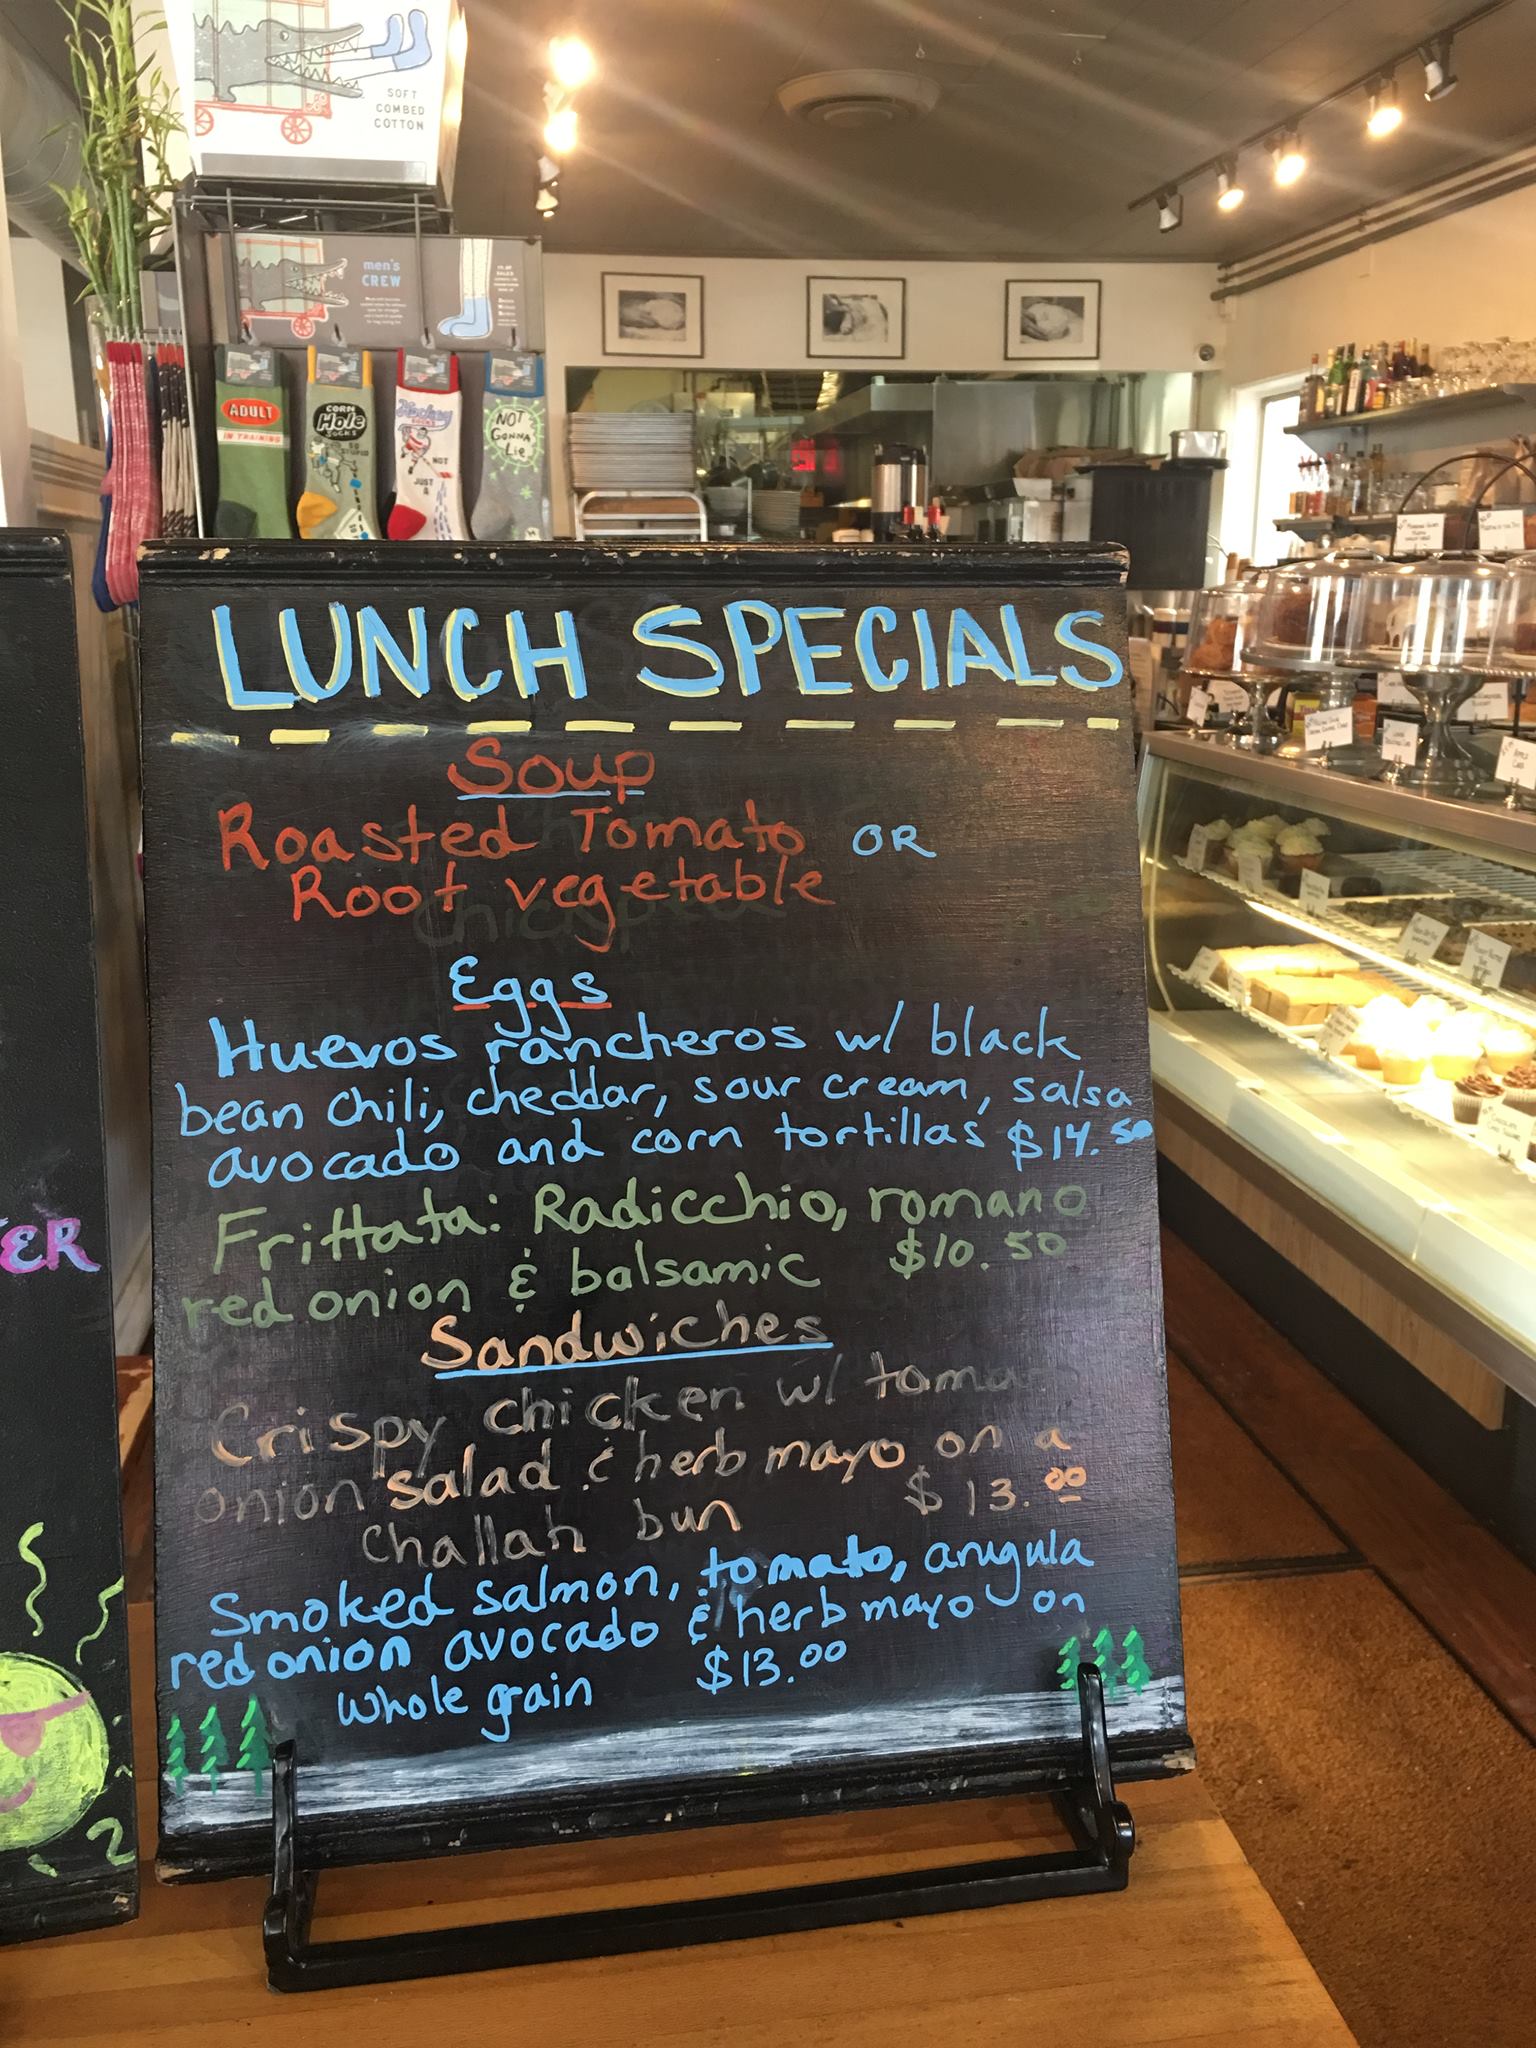 SOFT
COMBED
COTTON
men's
CREW
ADULT
IN TRAINING
CORN
Hole
SOCKS
Hockey
NOT
JUST
A
NOT
GONNA
Lie
LUNCH SPECIALS
Soup
Roasted Tomato OR
Root vegetable
Chickpea
Eggs
Huevos rancheros w/ black
bean chili, cheddar, sour cream, salsa
avocado and corn tortillas $14.50
Frittata: Radicchio, romano
red onion & balsamic $10.50
Sandwiches
Crispy chicken w/ toma
onion salad & herb mayo on a
challah bun $13.00
Smoked salmon, tomato, arugula
red onion avocado & herb mayo on
whole grain $13.00
ER